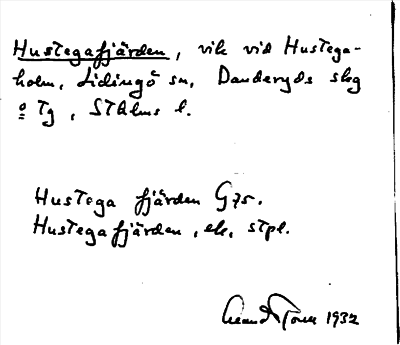 Hustegafjärden, vik vid Hustega-
holm, Lidingö sn, Danderyds slg
o Tg, STHlms l.
Hustega fjärden G75.
Hustegafjärden, ek, stpl.
1932